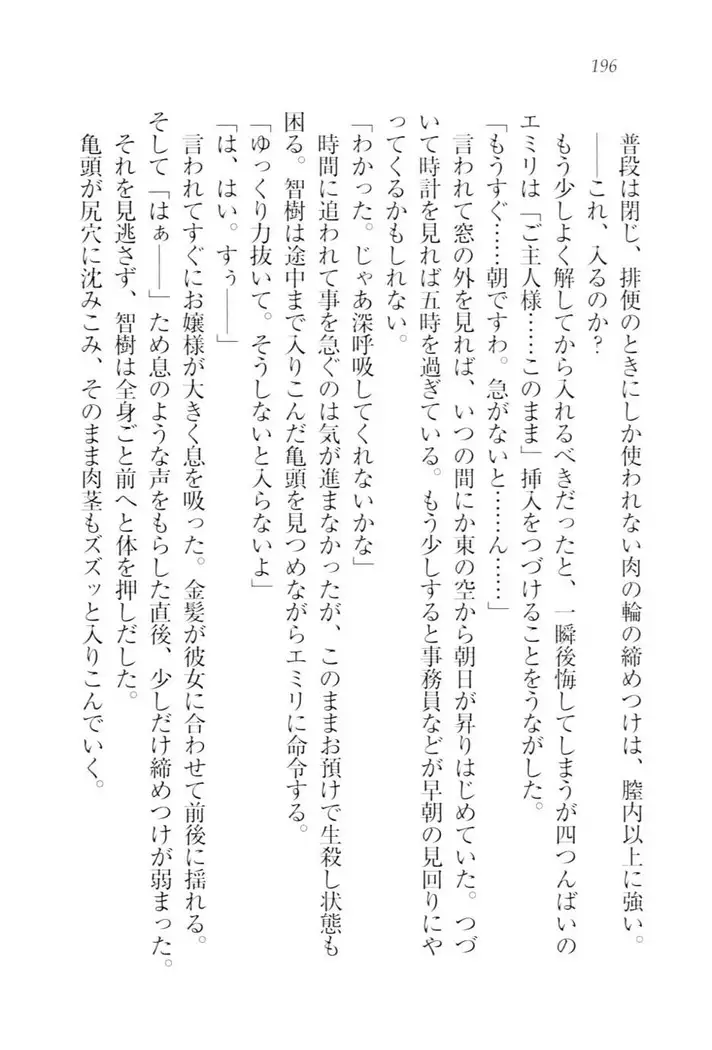 196
普段は閉じ、排便のときにしか使われない肉の輪の締めつけは、膣内以上に強い。
――これ、入るのか?
もう少しよく解してから入れるべきだったと、一瞬後悔してしまうが四つんばいの
エミリは「ご主人様……このまま」挿入をつづけることをうながした。
「もうすぐ……朝ですわ。急がないと……ん……」
言われて窓の外を見れば、いつの間にか東の空から朝日が昇りはじめていた。つづ
いて時計を見れば五時を過ぎている。もう少しすると事務員などが早朝の見回りにや
ってくるかもしれない。
「わかった。じゃあ深呼吸してくれないかな」
時間に追われて事を急ぐのは気が進まなかったが、このままお預けで生殺し状態も
困る。智樹は途中まで入りこんだ亀頭を見つめながらエミリに命令する。
「ゆっくり力抜いて。そうしないと入らないよ」
「は、はい。すぅ――」
言われてすぐにお嬢様が大きく息を吸った。金髪が彼女に合わせて前後に揺れる。
そして「はぁ――」ため息のような声をもらした直後、少しだけ締めつけが弱まった。
それを見逃さず、智樹は全身ごと前へと体を押しだした。
亀頭が尻穴に沈みこみ、そのまま肉茎もズズッと入りこんでいく。